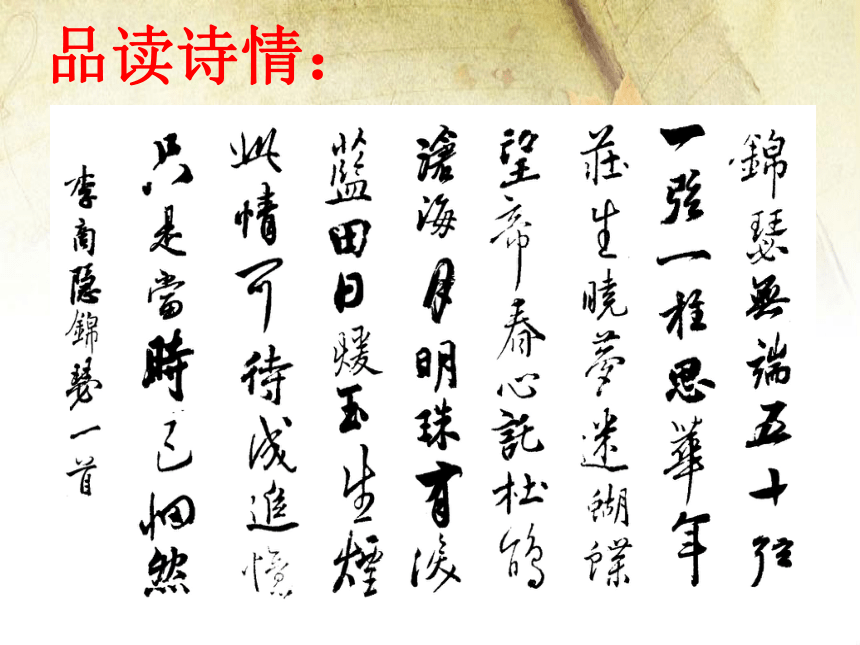 品读诗情：
錦瑟無端五十弦
一弦一柱思華年
莊生曉夢迷蝴蝶
望帝春心託杜鵑
滄海月明珠有淚
藍田日煖玉生煙
此情可待成追憶
只是當時已惘然
李商隱錦瑟一首